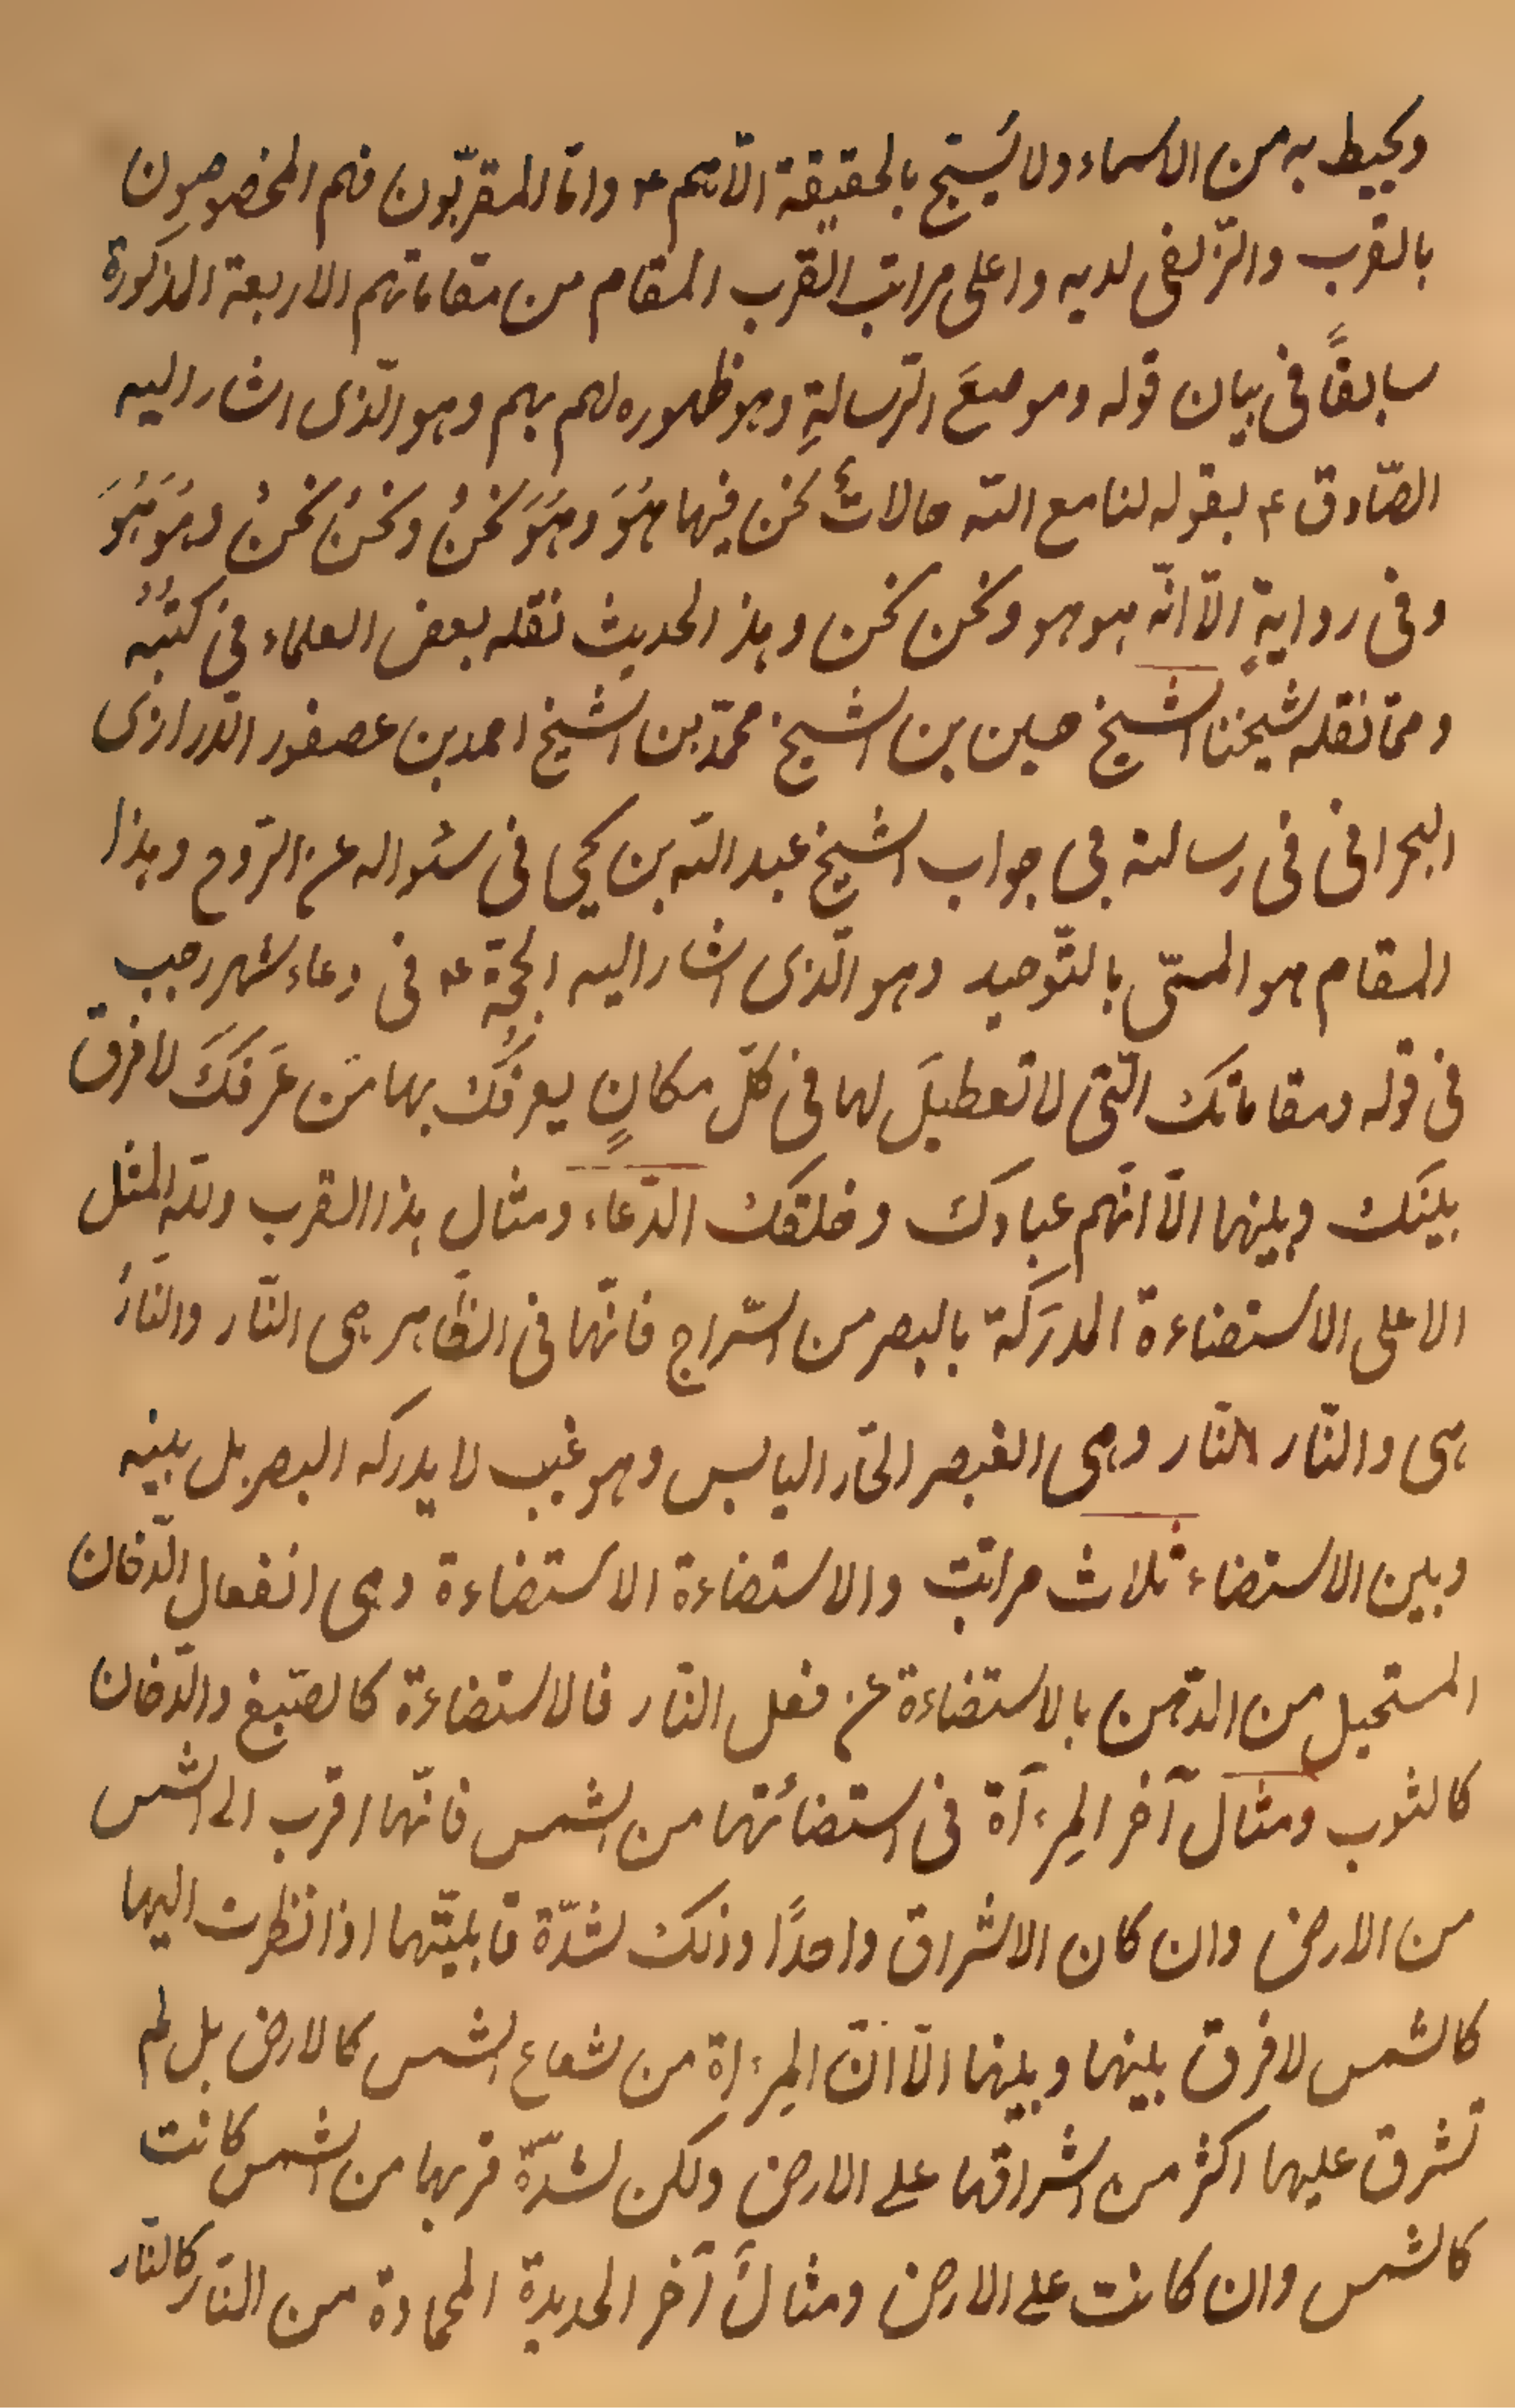 ويحيط به من الاسماء ولا يُسبّح بالحقيقة الّا بهم ع واما المقرّبون فهم المخصوصون
بالقرب والزّلفى لديه واعلى مراتب القرب المقام من مقاماتهم الاربعة المذكورة
سابقًا فى بيان قوله وموضعَ الرّسالةِ وهو ظهوره لهم بهم وهو الّذى اشار اليه
الصّادق ع بقوله لنا مع الله حالاتٌ نحن فيها هُوَ وهُوَ نحنُ ونحنُ نحنُ وهُوَ هُوَ
وفى روايةٍ الّا انّه هو هو ونحن نحن وهذا الحديث نقله بعض العلماء فى كتبه
وممّا نقله شيخنا الشيخ حسين بن الشيخ محمّد بن الشيخ احمد بن عصفور الدّرازى
البحرانى فى رسالته فى جواب الشيخ عبد الله بن يحيى فى سئواله عن الرّوح وهذا
المقام هو المسمّى بالتّوحيد وهو الّذى اشار اليه الحجّة ع فى دعاء شهر رجب
فى قوله ومقاماتك الّتى لا تعطيلَ لها فى كلّ مكانٍ يعرفُك بها مَن عَرَفَكَ لا فرق
بينك وبينها الّا انّهم عبادك وخلقك الدّعاء ومثال هذا القرب ولله المثل
الاعلى الاستضاءة المدرَكة بالبصر من السّراج فانّها فى الظّاهر هى النّار والنّارُ
هى والنّار النّار وهى العنصر الحّار اليابس وهو غيب لا يدركه البصر بل بينه
وبين الاستضاء ثلاث مراتب والاستضاءة الاستضاءة وهى انفعال الدّخان
المستحيل من الدّهن بالاستضاءة عن فعل النّار فالاستضاءة كالصّبغ والدّخان
كالثوب ومثال آخر المِرءآة فى استضائتها من الشمس فانّها اقرب الى الشمس
من الارض وان كان الاشراق واحدًا وذلك لشدّة قابليّتها اذا نظرت اليها
كالشمس لا فرق بينها وبينها الّا انّ المِرءاة من شعاع الشمس كالارض بل لم
تشرق عليها اكثر من اشراقها على الارض ولكن لشدّة قربها من الشمس كانت
كالشمس وان كانت على الارض ومثالٌ آخر الحديدة المحماة من النّار كالنّار